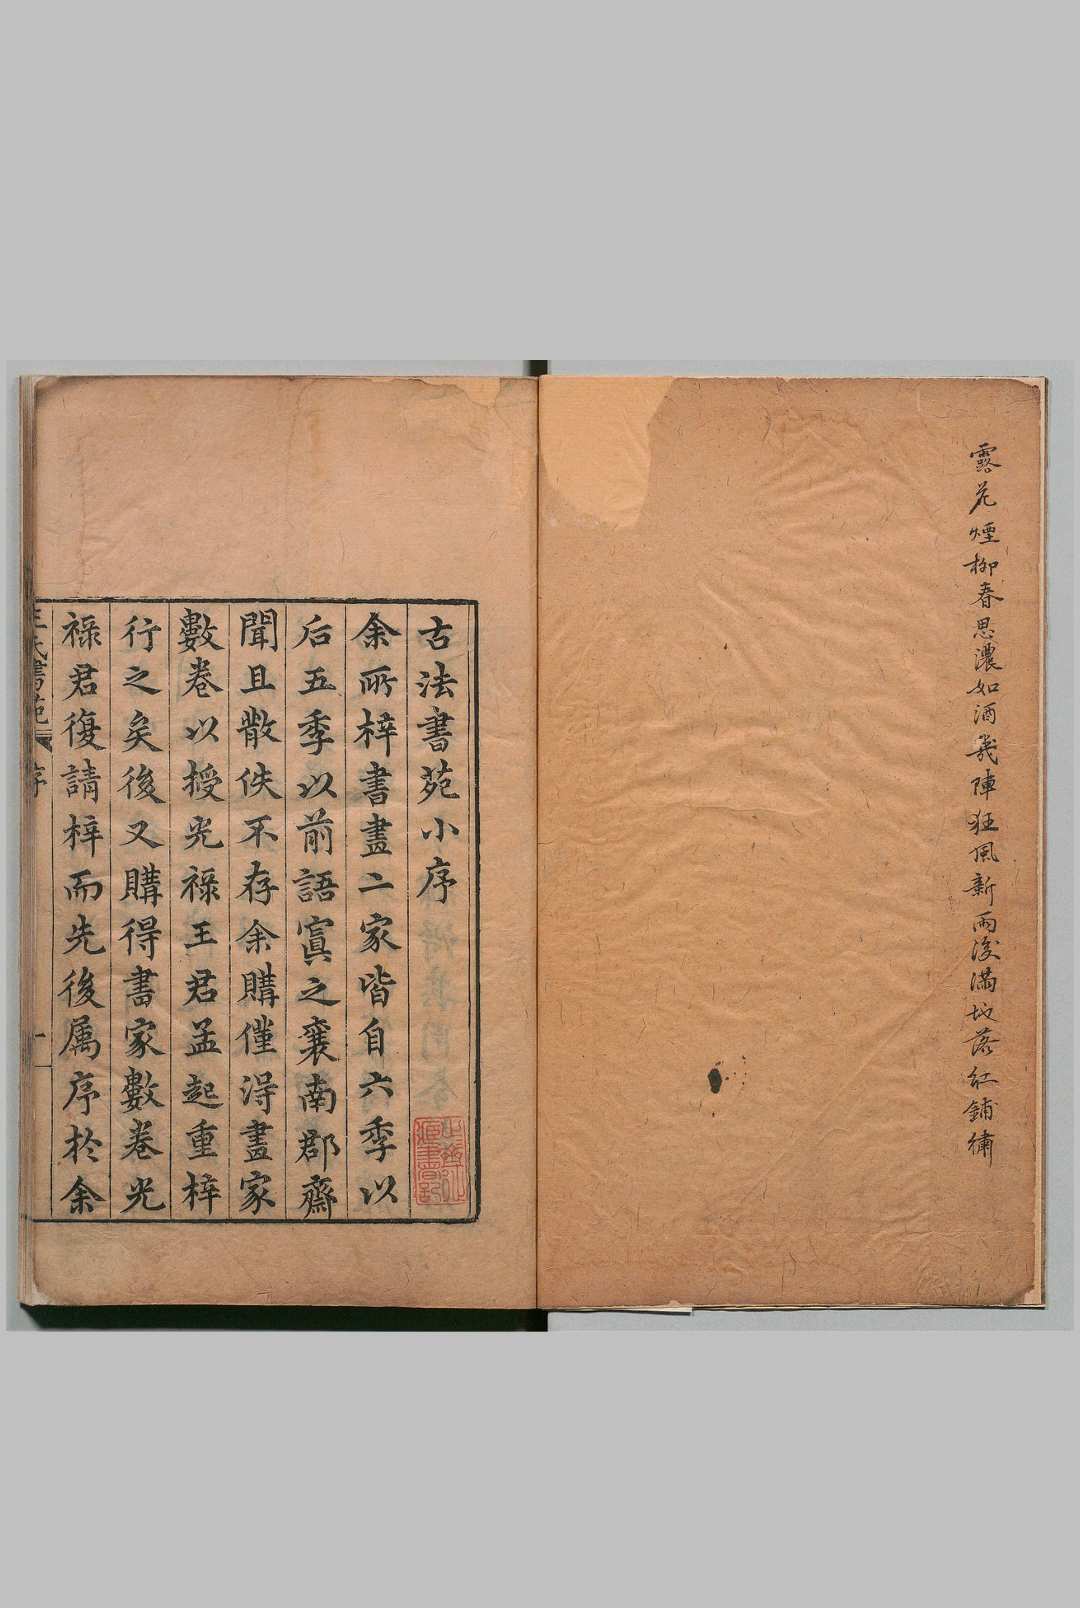 露花煙柳春思濃如酒幾陣狂風新雨後滿地落紅鋪繡
古法書苑小序
余所梓書畫二家皆自六季以
后五季以前語寘之襄南郡齋
聞且散佚不存余購僅得畫家
數卷以授光祿王君孟起重梓
行之矣後又購得書家數卷光
祿君復請梓而先後属序於余
王氏書苑 序 一